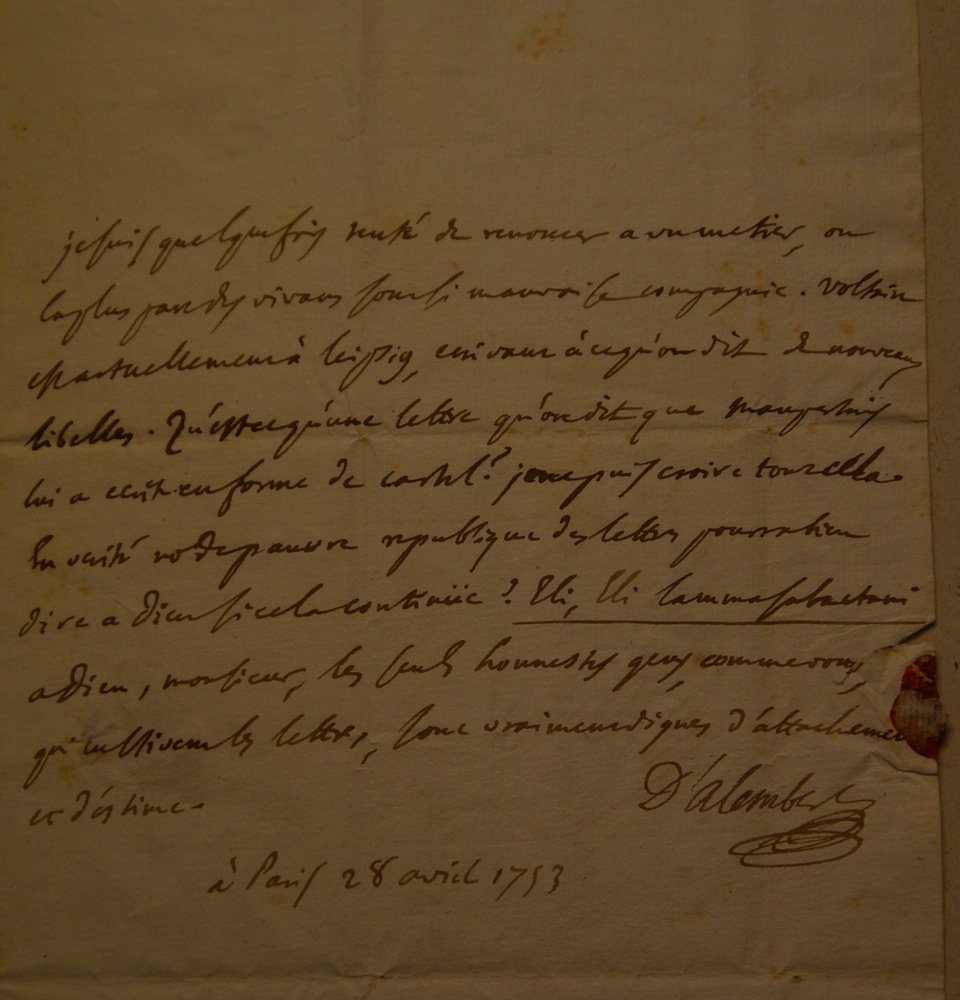 je suis quelquefois tenté de renoncer a un metier, ou
la plus part des vivans sont si mauvaise compagnie. Voltaire
est actuellement à leipsig, ecrivant à ce qu'on dit de nouveaux
libelles. Qu'est ce qu'une lettre qu'on dit que maupertuis
lui a ecrit en forme de cartel? je ne puis croire tout cela.
En verité notre pauvre republique des lettres pourra bien
dire a Dieu si cela continüe? Eli, Eli lamma sabactani
adieu, monsieur, les seuls honnestes gens, comme vous,
qui cultivent les lettres, sont vraiment dignes d'attachement
et d'éstime.
D'Alembert
à Paris 28 avril 1753